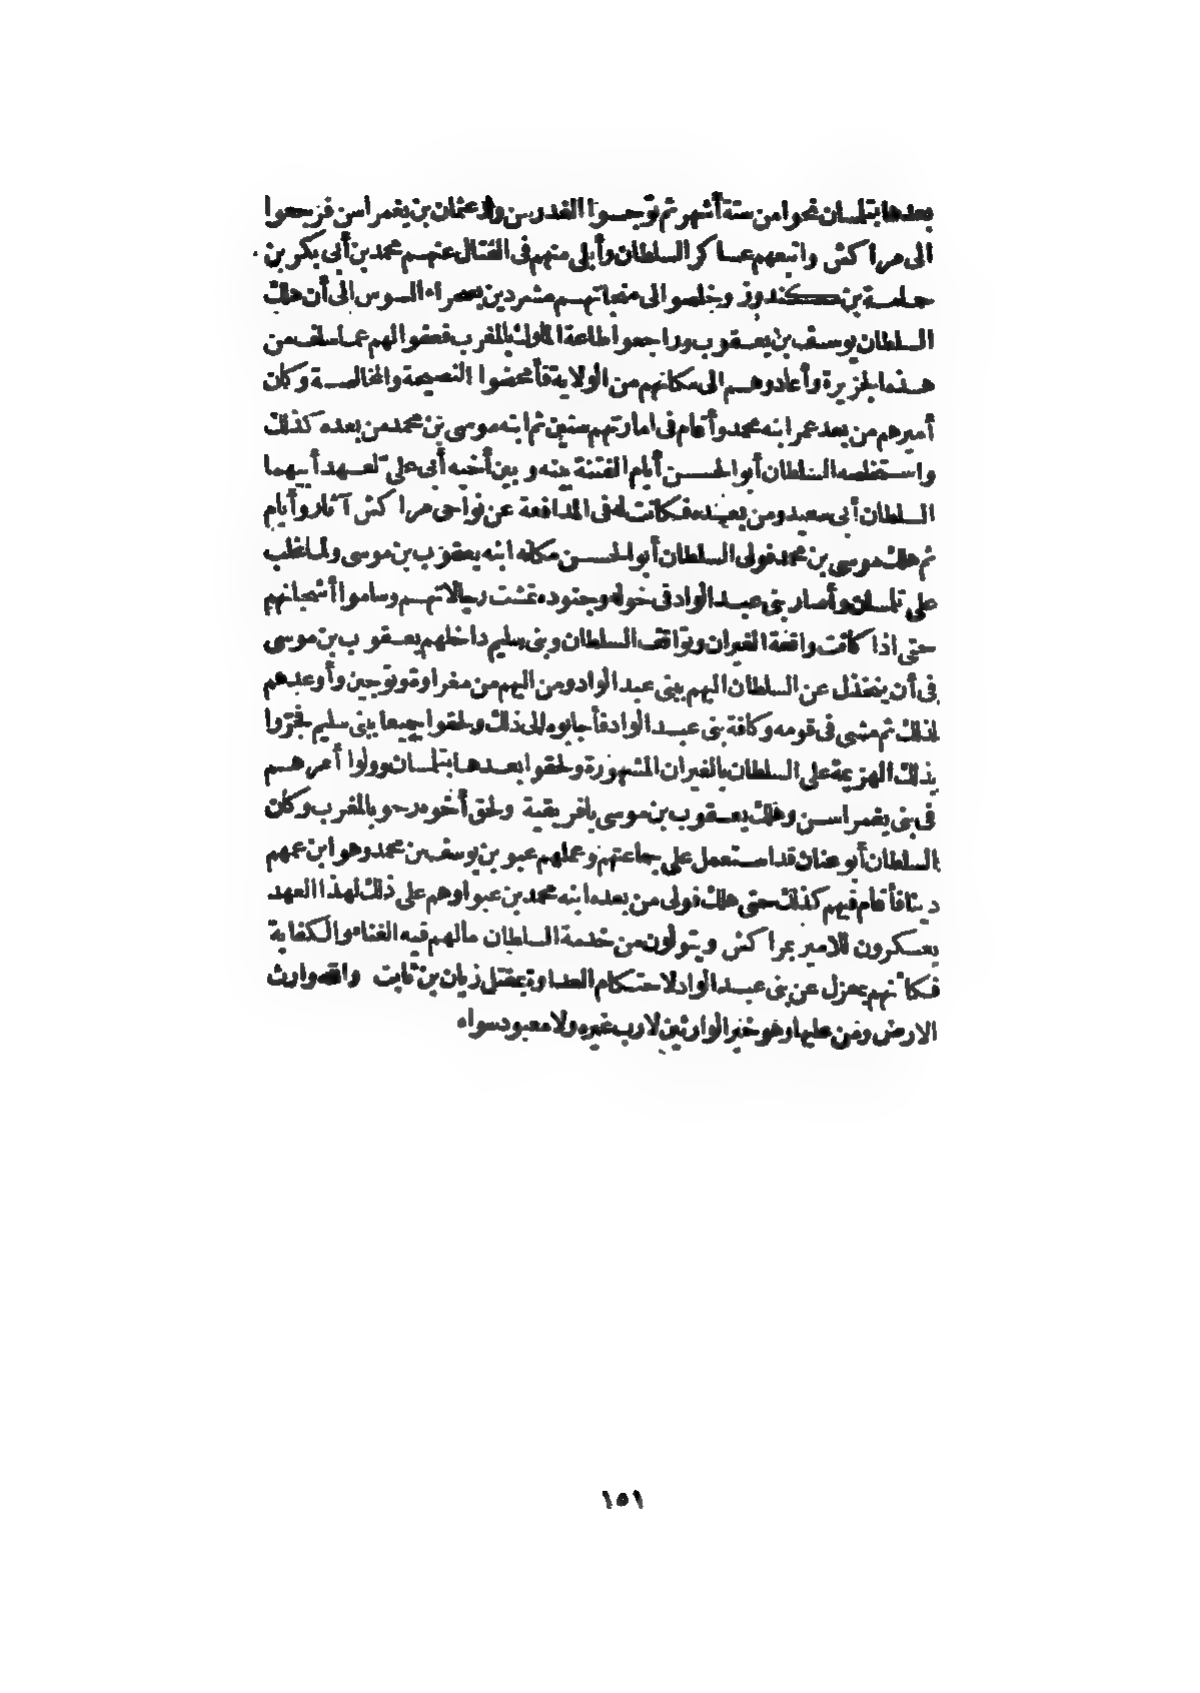 بعدها بتلمسان نحوا من ستة أشهر ثم توجسوا الغدر من ولد عثمان بن يغمراسن فرجعوا
الى مراكش واتبعهم عساكر السلطان وأبلى منهم فى القتال عنهم محمد بن أبى بكر بن
حمامة بن كندوز وخلصوا الى منجاتهم مشردين بصحراء السوس الى أن هلك
السلطان يوسف بن يعقوب وراجعوا طاعة الملوك بالمغرب فعفوا لهم عما سلف من
هذه الجزيرة وأعادوهم الى مكانهم من الولاية فأمحضوا النصيحة والمخالصة وكان
أميرهم من بعد عمر ابنه محمد وأقام فى امارتهم سنين ثم ابنه موسى بن محمد من بعده كذلك
واستخلصه السلطان أبو الحسن أيام الفتنة بينه وبين أخيه أبى على لعهد أبيهما
السلطان أبى سعيد ومن بعده فكانت له فى المدافعة عن نواحى مراكش آثار وأيام
ثم هلك موسى بن محمد فولى السلطان أبو الحسن مكانه ابنه يعقوب بن موسى ولما غلب
على تلمسان وأصار بنى عبد الواد فى خوله وجنوده تمشت رجالاتهم وساموا أشجانهم
حتى اذا كانت واقعة القيروان وتواقف السلطان وبنى سليم داخلهم يعقوب بن موسى
فى أن ينخذل عن السلطان اليهم ببنى عبد الواد ومن اليهم من مغراوة وتوجين وأوعدهم
لذلك ثم مشى فى قومه وكافة بنى عبد الواد فأجابوه الى ذلك ولحقوا جميعا ببنى سليم فجرّوا
بذلك الهزيمة على السلطان بالقيروان المشهورة ولحقوا بعدها بتلمسان وولوا أمرهم
فى بنى يغمراسن وهلك يعقوب بن موسى بافريقية ولحق أخوه رحو بالمغرب وكان
السلطان أبو عنان قد استعمل على جماعتهم وعملهم عبو بن يوسف بن محمد وهو ابن عمهم
دينا فأقام فيهم كذلك حتى هلك فولى من بعده ابنه محمد بن عبو وهم على ذلك لهذا العهد
يعسكرون للامير بمراكش ويتولون من خدمة السلطان مالهم فيه الغناء والكفاية
فكأنهم بمعزل عن بنى عبد الواد لاستحكام العداوة بمقتل زيان بن ثابت والله وارث
الارض ومن عليها وهو خير الوارثين لا رب غيره ولا معبود سواه
١٥١